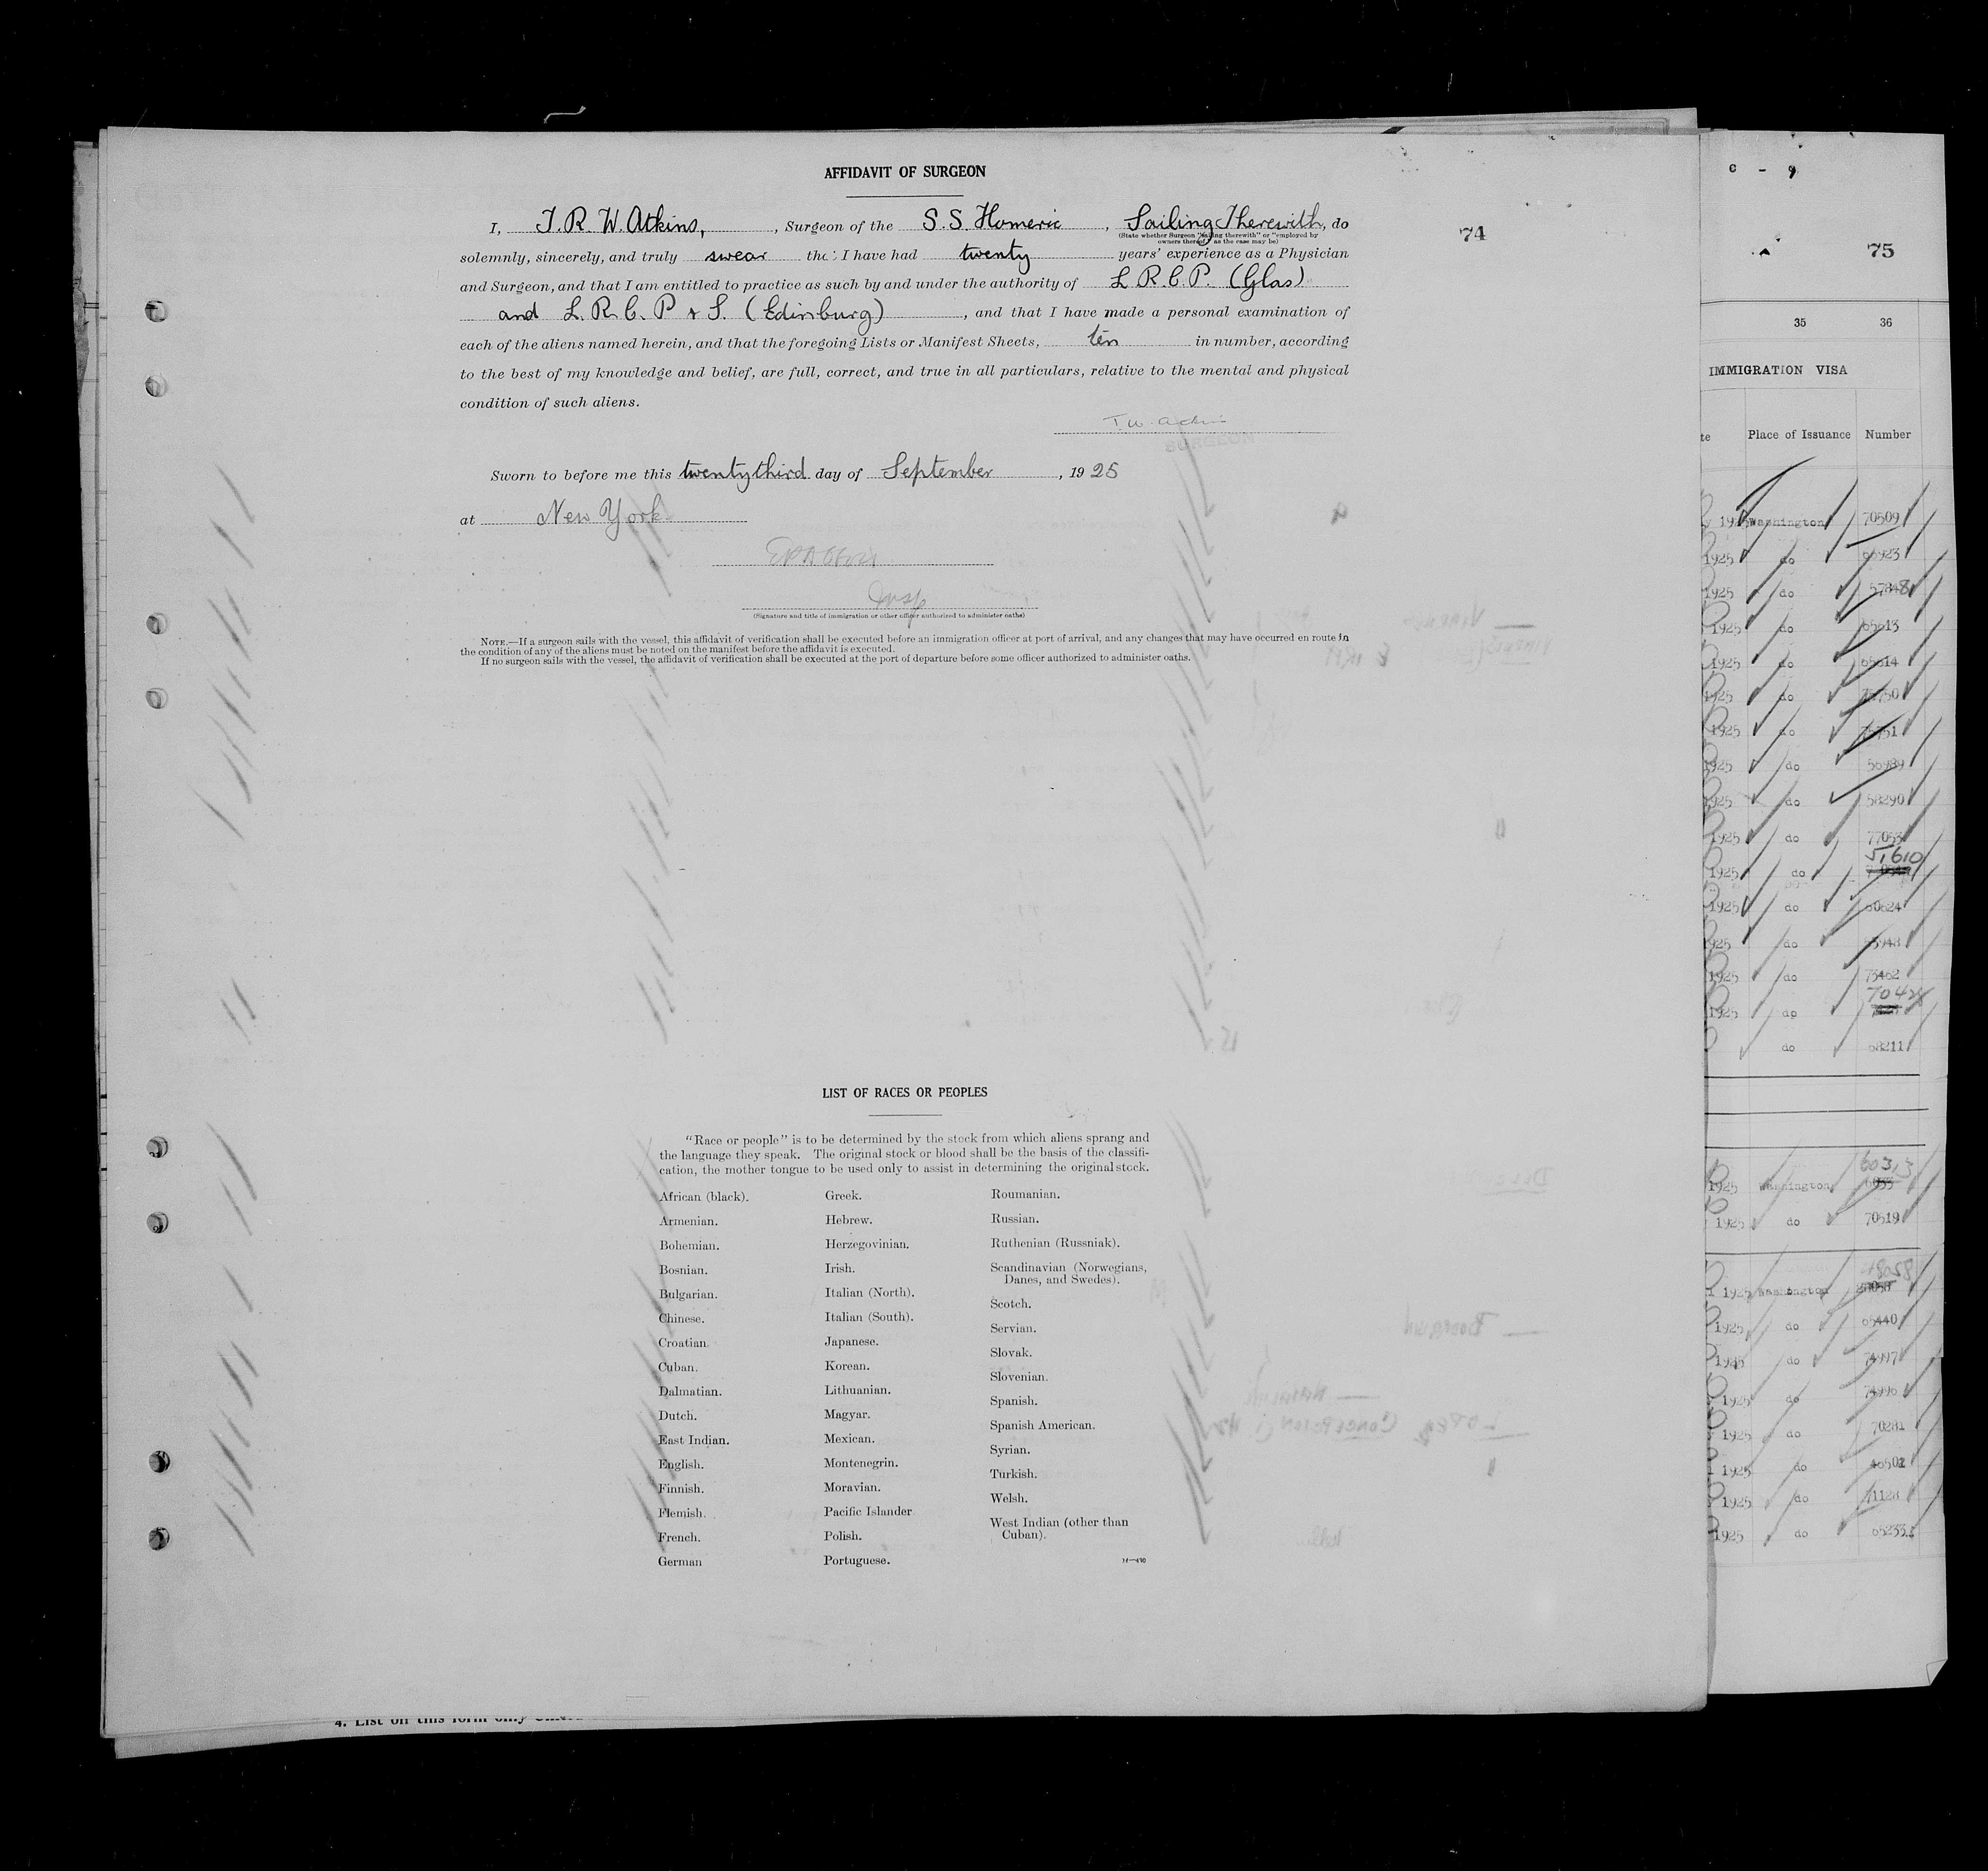 AFFIDAVIT OF SURGEON
I, T. R. W. Atkins, , Surgeon of the S.S. Homeric , Sailing Therewith, do
(State whether Surgeon "sailing therewith" or "employed by
owners thereof," as the case may be)
74
solemnly, sincerely, and truly swear the: I have had twenty years' experience as a Physician
and Surgeon, and that I am entitled to practice as such by and under the authority of L R.C.P. (Glas)
and L. R. C. P & S. (Edinburg) , and that I have made a personal examination of
each of the aliens named herein, and that the foregoing Lists or Manifest Sheets, ten in number, according
to the best of my knowledge and belief, are full, correct, and true in all particulars, relative to the mental and physical
condition of such aliens.
SURGEON
Sworn to before me this twentythird day of September , 19 25
at New York
Insp
(Signature and title of immigration or other officer authorized to administer oaths)
NOTE.—If a surgeon sails with the vessel, this affidavit of verification shall be executed before an immigration officer at port of arrival, and any changes that may have occurred en route in
the condition of any of the aliens must be noted on the manifest before the affidavit is executed.
If no surgeon sails with the vessel, the affidavit of verification shall be executed at the port of departure before some officer authorized to administer oaths.
LIST OF RACES OR PEOPLES
"Race or people" is to be determined by the stock from which aliens sprang and
the language they speak. The original stock or blood shall be the basis of the classifi-
cation, the mother tongue to be used only to assist in determining the original stock.
African (black).
Armenian.
Bohemian.
Bosnian.
Bulgarian.
Chinese.
Croatian.
Cuban.
Dalmatian.
Dutch.
East Indian.
English.
Finnish.
Flemish.
French.
German
Greek.
Hebrew.
Herzegovinian.
Irish.
Italian (North).
Italian (South).
Japanese.
Korean.
Lithuanian.
Magyar.
Mexican.
Montenegrin.
Moravian.
Pacific Islander
Polish.
Portuguese.
Roumanian.
Russian.
Ruthenian (Russniak).
Scandinavian (Norwegians,
Danes, and Swedes).
Scotch.
Servian.
Slovak.
Slovenian.
Spanish.
Spanish American.
Syrian.
Turkish.
Welsh.
West Indian (other than
Cuban).
14—430
4. List on this form only
C - 9
75
35 36
IMMIGRATION VISA
Place of Issuance Number
1925 Washington 70509
1925 do
1925 do 57848
1925 do 65613
1925 do 65614
1925 do 75750
1925 do 75751
1925 do 56989
1925 do 58290
1925 do 77053
1925 do 51610
1925 do 60624
1925 do
1925 do 73462
1925 do
do 68211
1925 Washington 60313
1925 do 70519
1925 Washington
1925 do 65440
1925 do 74997
1925 do 74996
1925 do 70281
1925 do 46502
1925 do 71128
1925 do 65233